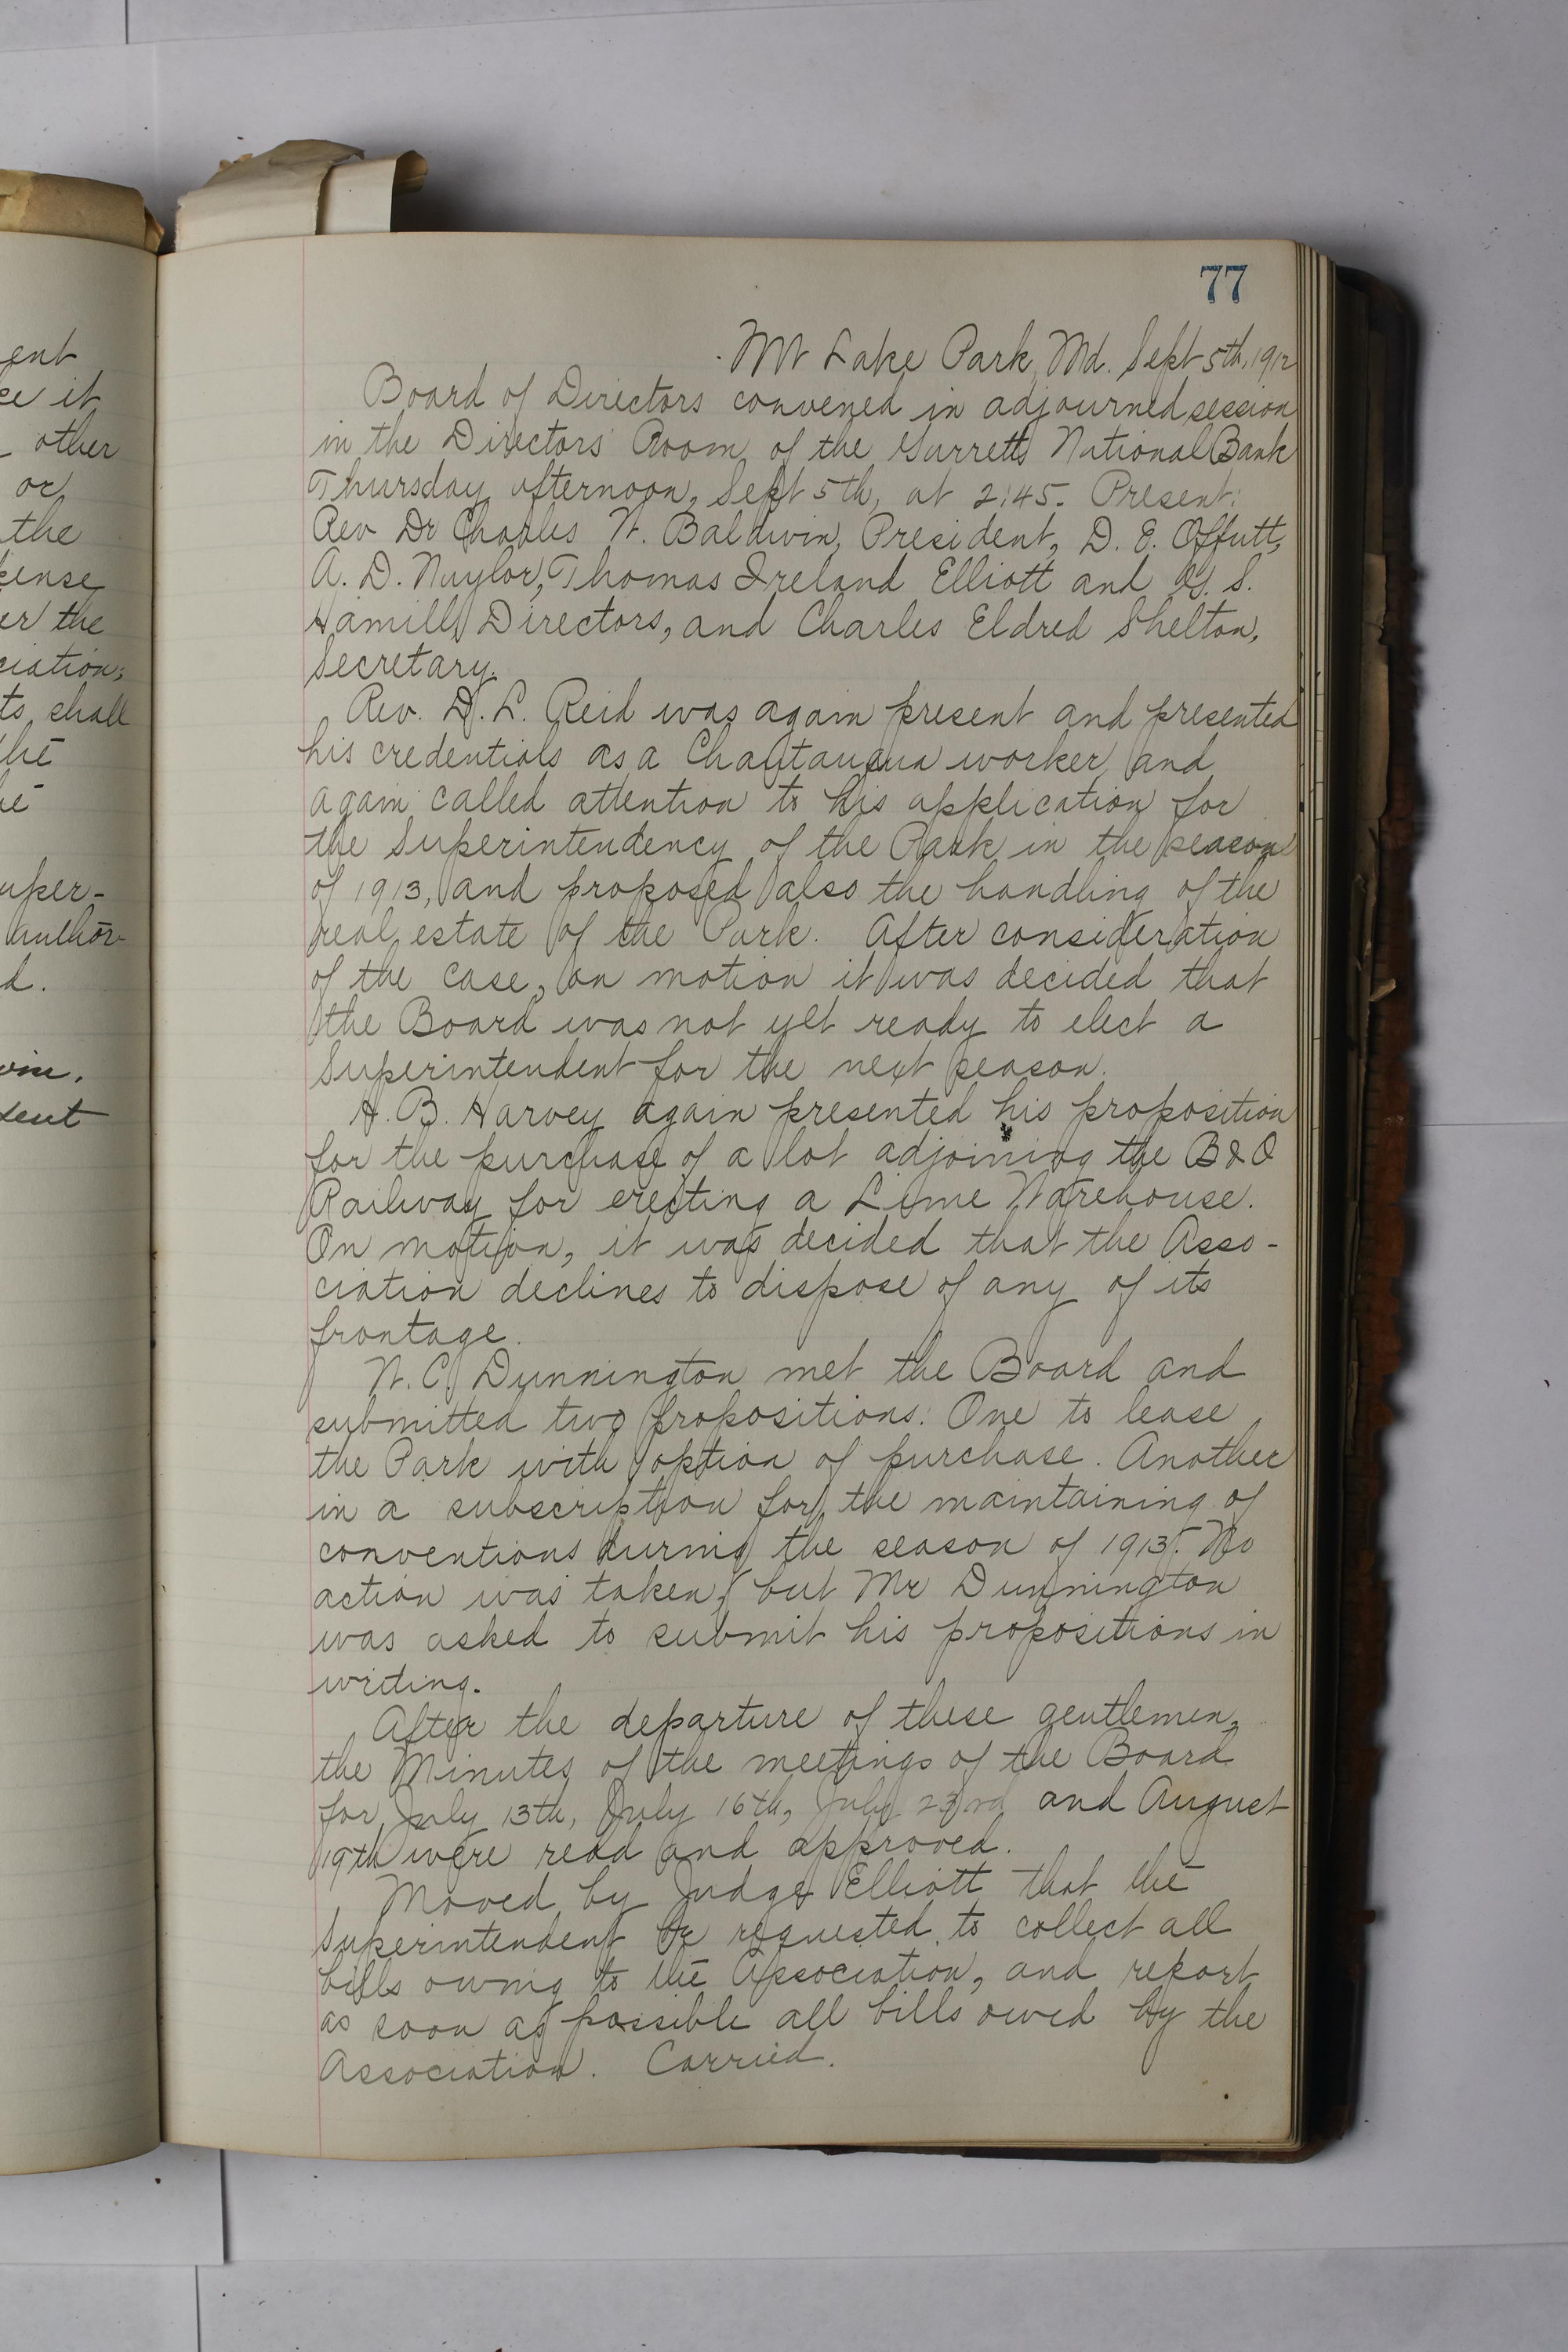 ent
ce it
other
or
the
pense
er the
ciation;
ts shall
the
he
uper-
author-
d.
win.
dent
77
Mt Lake Park, Md. Sept 5th, 1912
Board of Directors convened in adjourned session
in the Directors' Room of the Garrett National Bank
Thursday afternoon, Sept 5th, at 2:45. Present:
Rev Dr Charles W. Baldwin, President, D. E. Offutt,
A. D. Naylor, Thomas Ireland Elliott and G. S.
Hamill, Directors, and Charles Eldred Shelton,
Secretary.
Rev. D. L. Reid was again present and presented
his credentials as a Chautauqua worker, and
again called attention to his application for
the Superintendency of the Park in the season
of 1913, and proposed also the handling of the
real estate of the Park. After consideration
of the case, on motion it was decided that
the Board was not yet ready to elect a
Superintendent for the next season.
H. B. Harvey again presented his proposition
for the purchase of a lot adjoining the B & O
Railway for erecting a Lime Warehouse.
On motion, it was decided that the Asso-
ciation declines to dispose of any of its
frontage.
W. C. Dunnington met the Board and
submitted two propositions: One to lease
the Park with option of purchase. Another
in a subscription for the maintaining of
conventions during the season of 1913. No
action was taken, but Mr Dunnington
was asked to submit his propositions in
writing.
After the departure of these gentlemen,
the Minutes of the meetings of the Board
for July 13th, July 16th, July 23rd and August
19th were read and approved.
Moved by Judge Elliott that the
Superintendent be requested to collect all
bills owing to the Association, and report
as soon as possible all bills owed by the
Association. Carried.